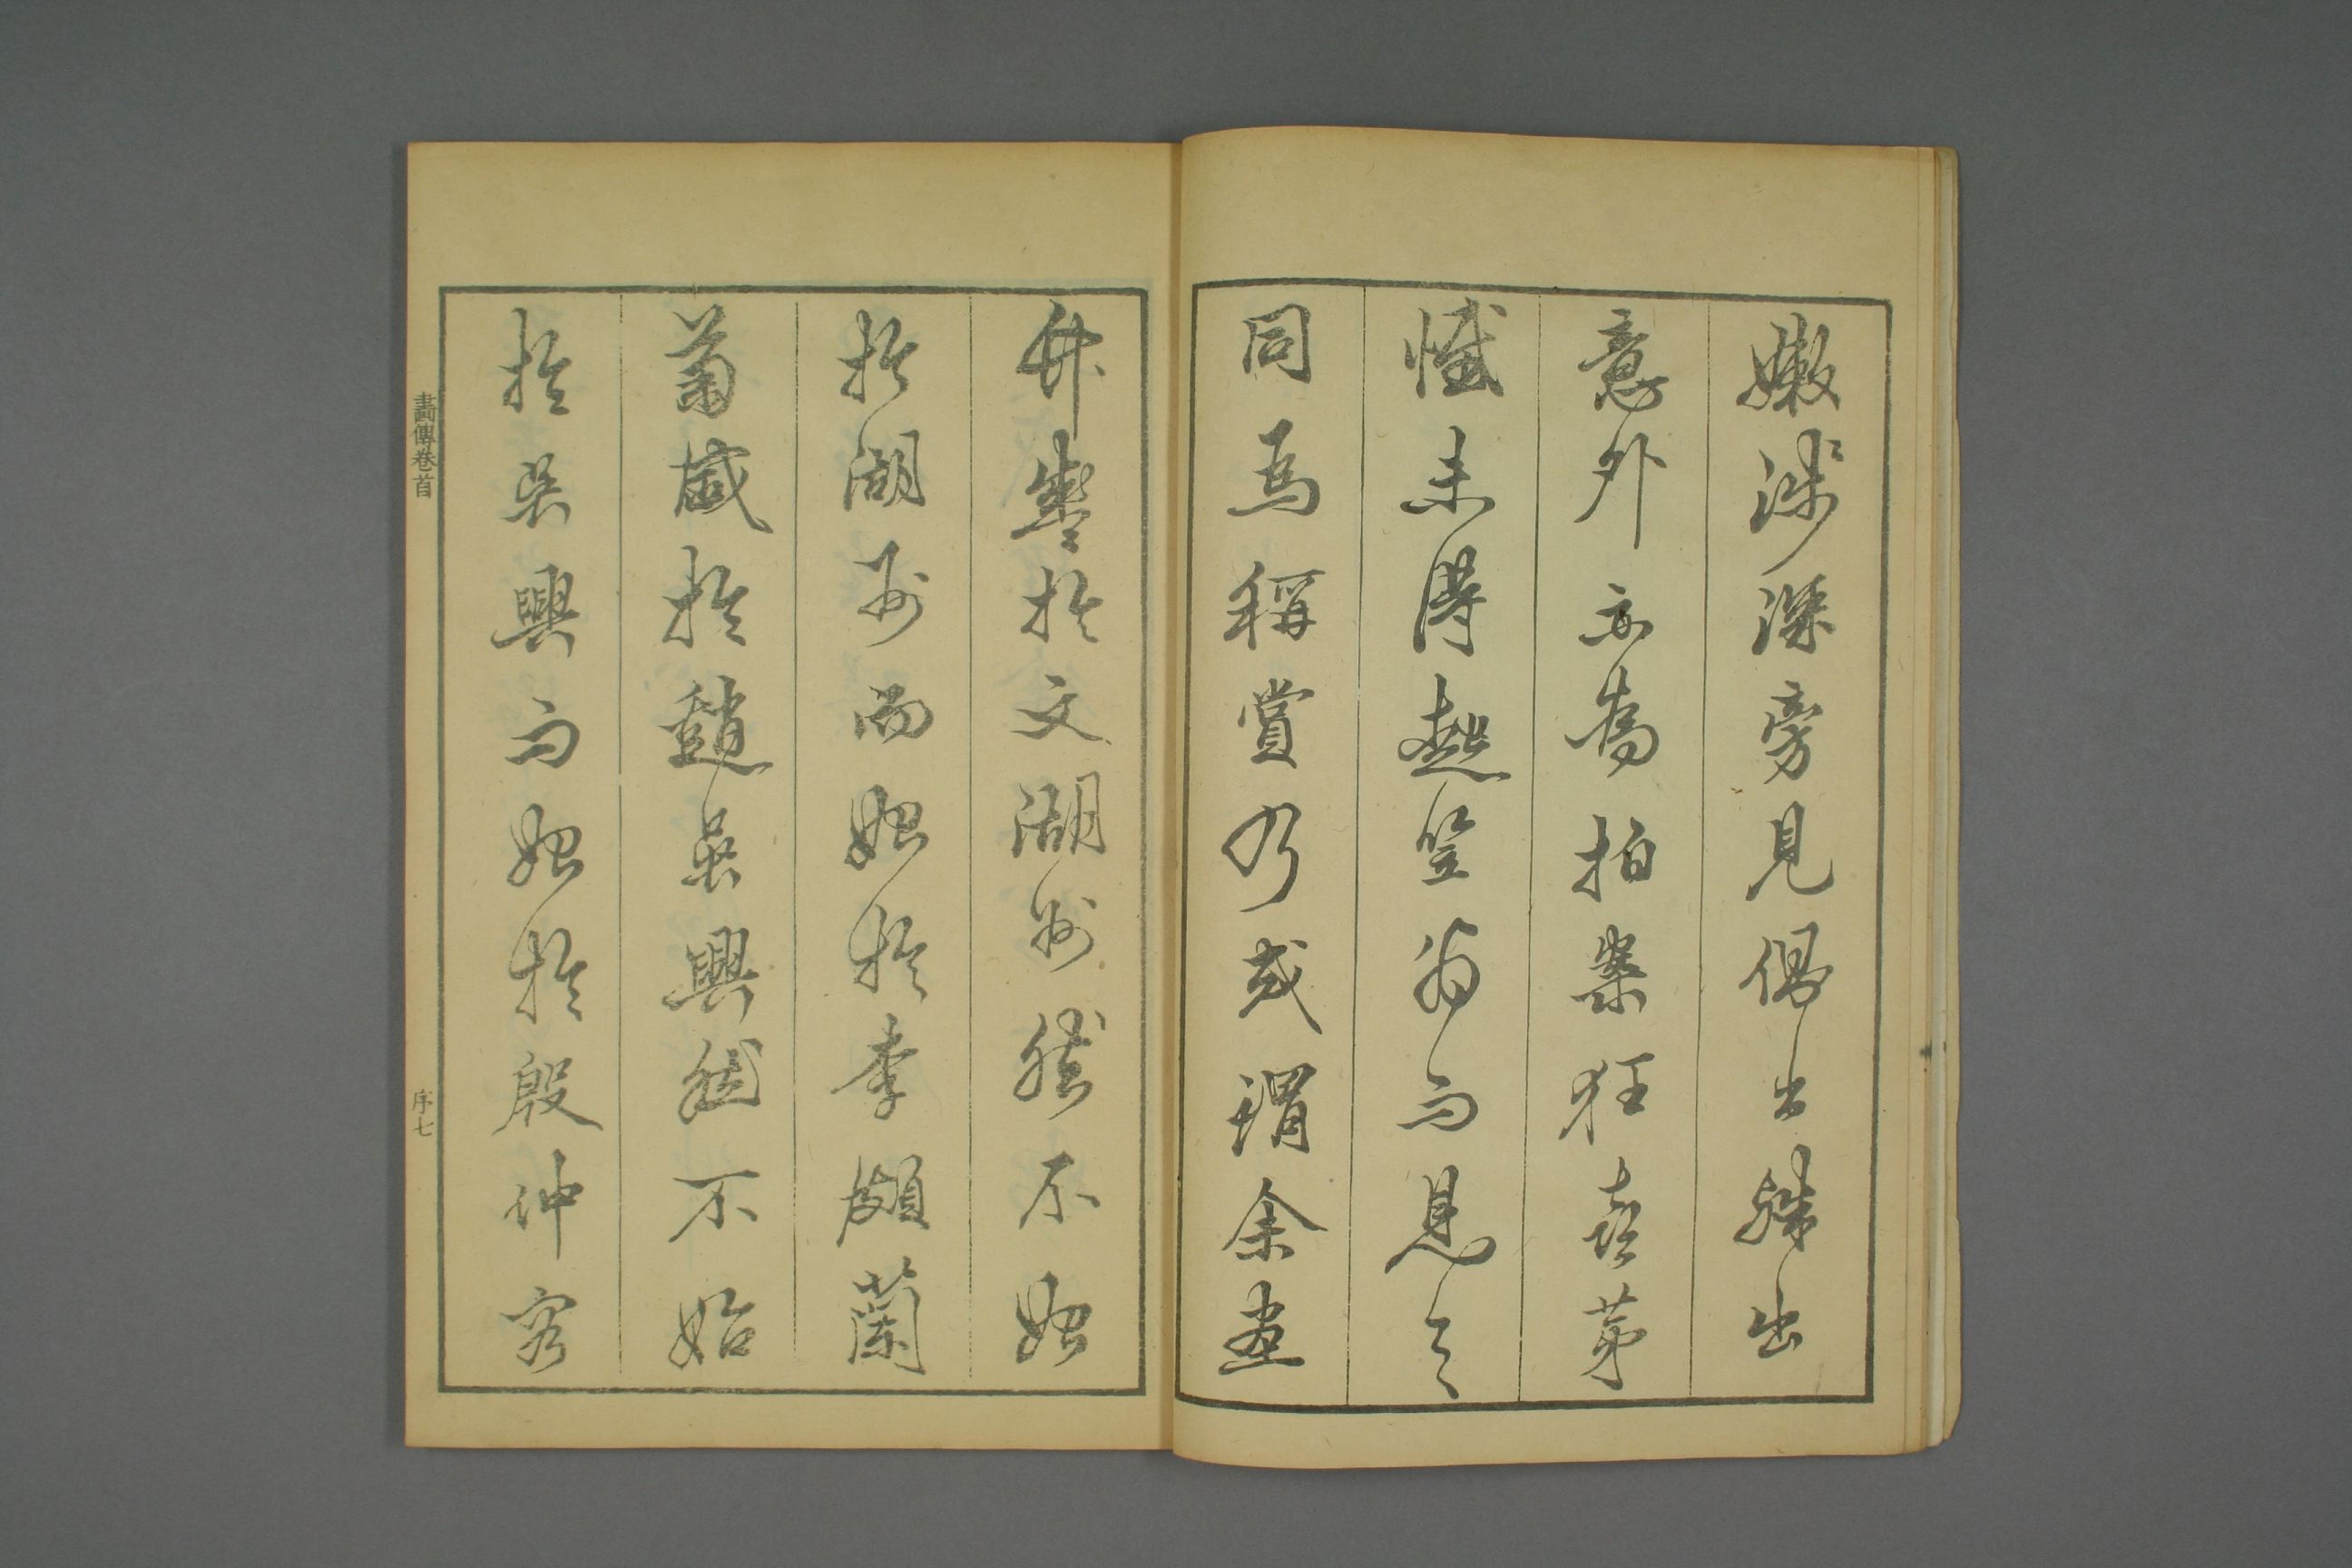 嫩淺深旁見偶出殊出
意外亦拍案狂喜第
憾未得起竺翁而見之
同焉稱賞乃或謂余畫
竹盛於文湖州然不始
於湖州而始於李頗蘭
菊盛於趙吳興然不始
於吳興而始於殷仲容
畫傳卷首
序七